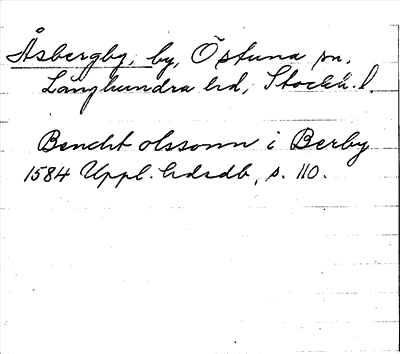 Åsbergby, by, Östuna sn.
Långhundra hd, Stockh. l.
Bencht olssonn i Berby
1584 Uppl. hdsdb, s. 110.